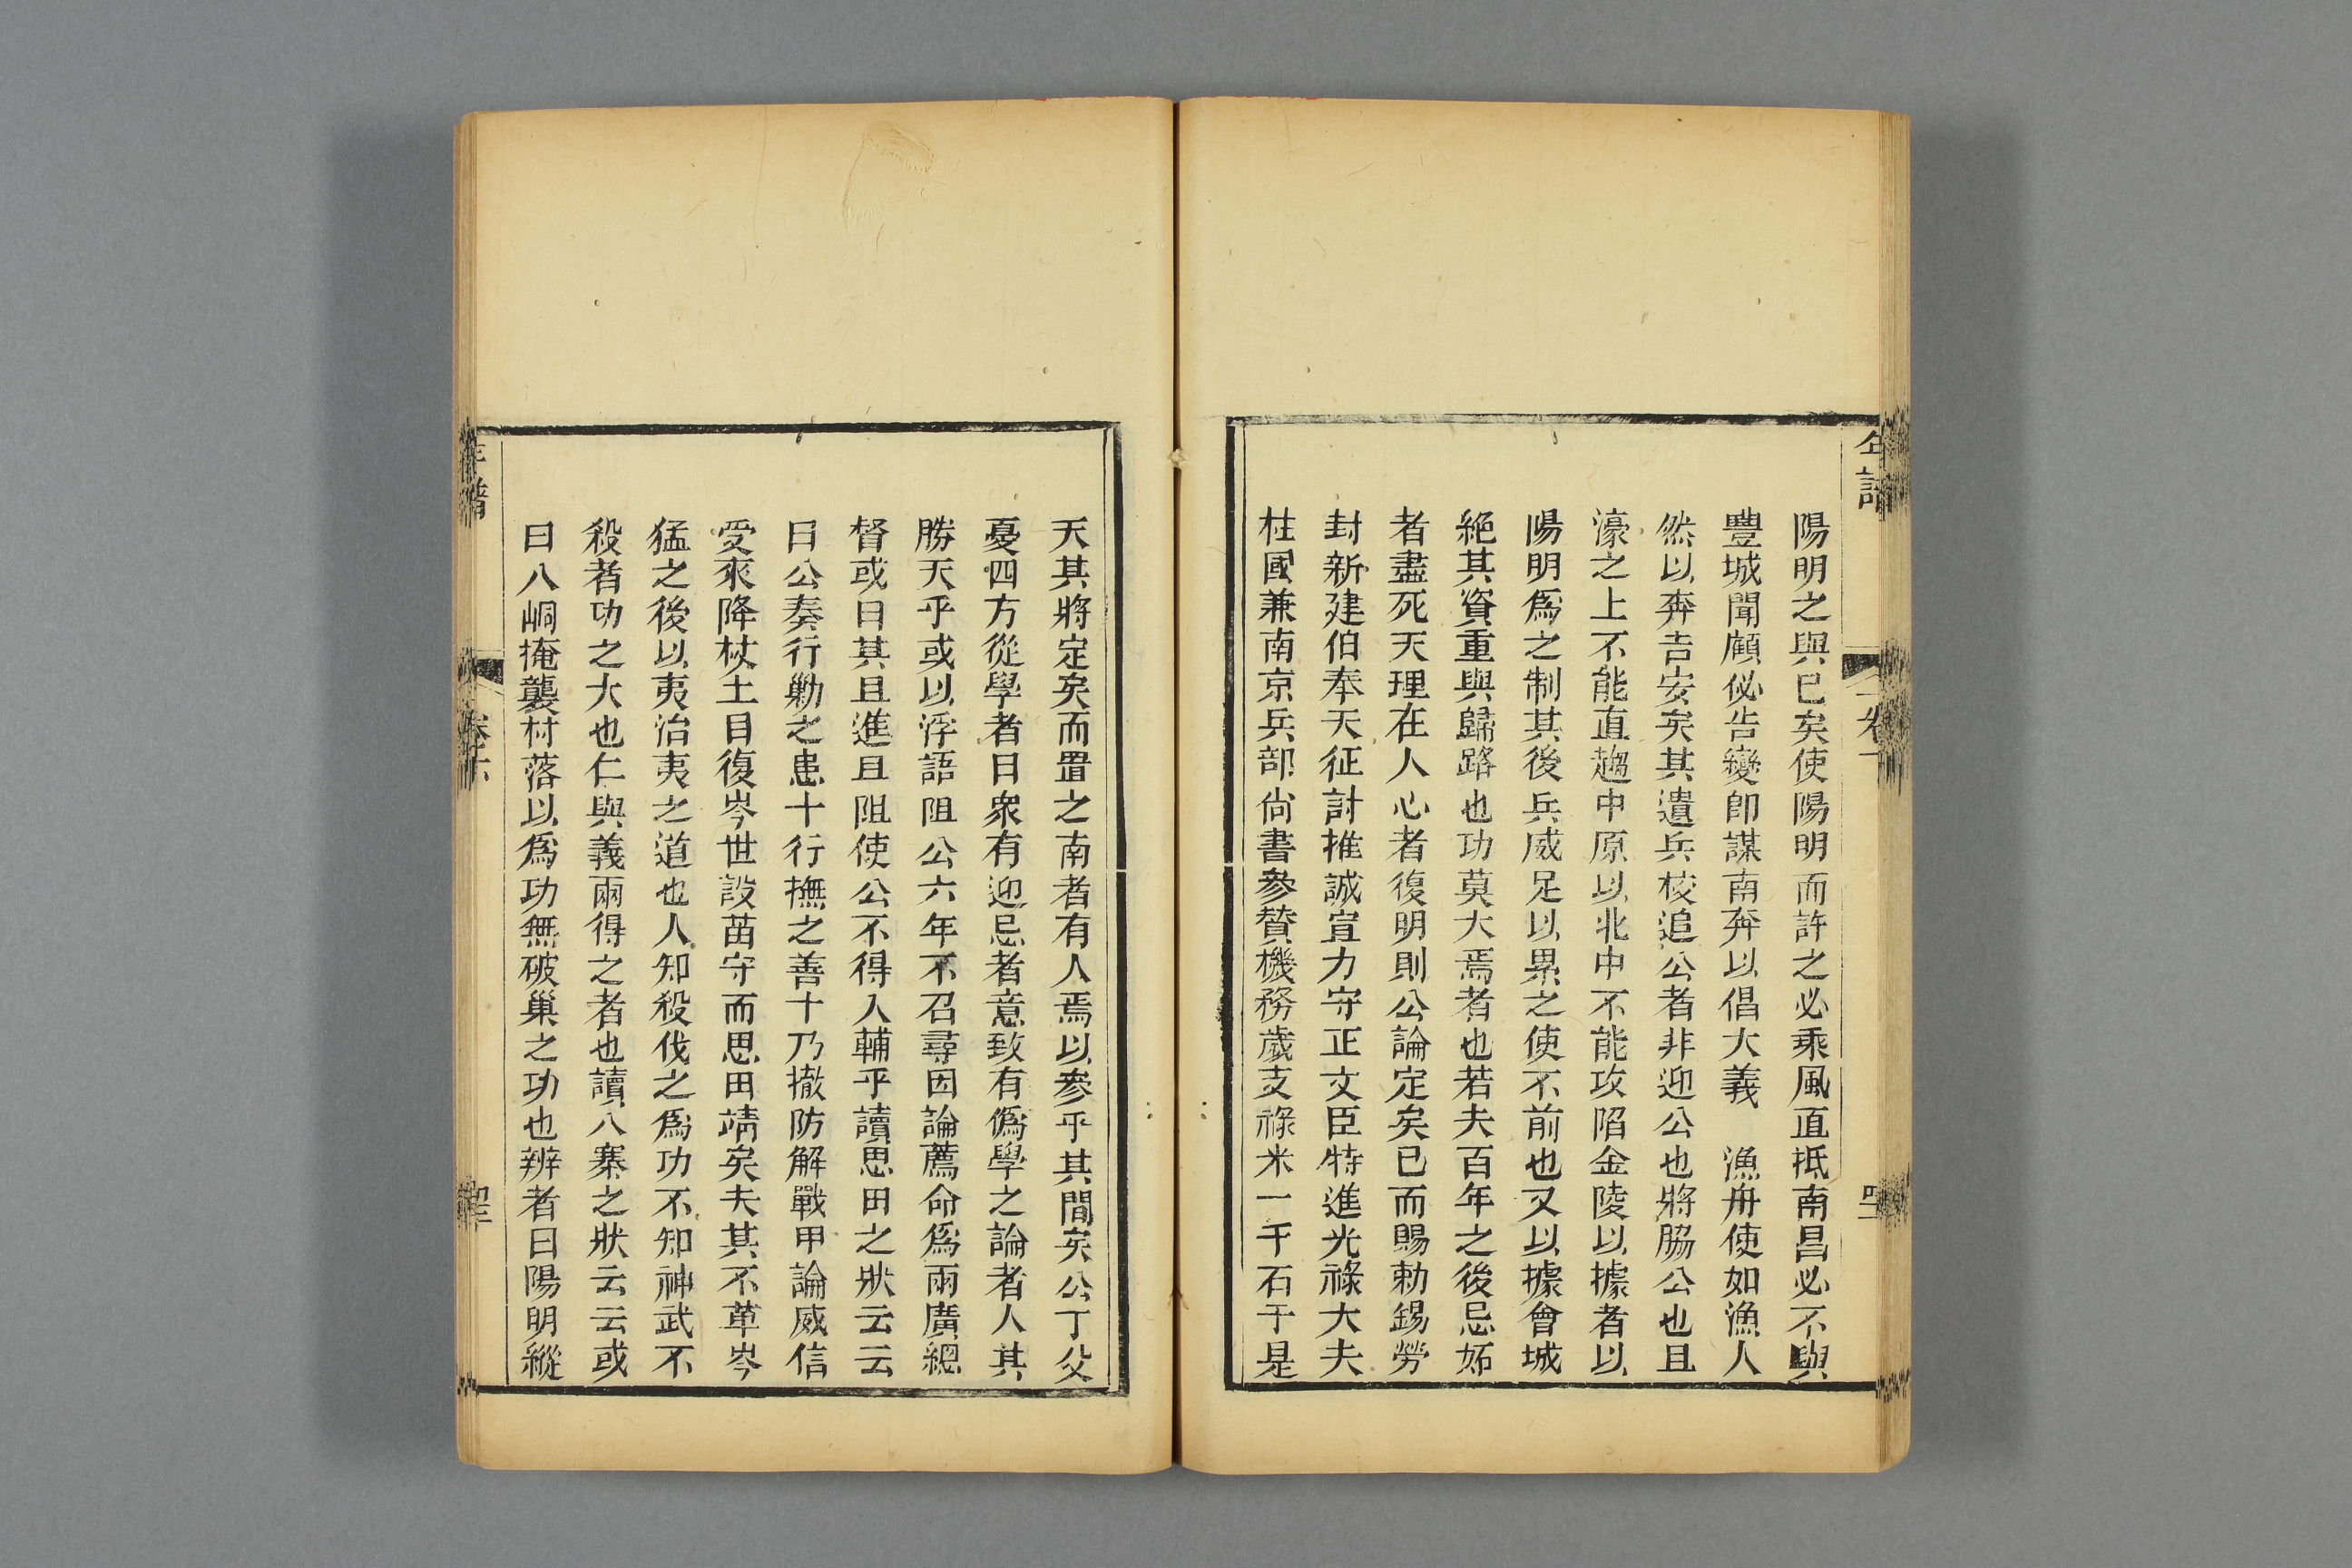 年譜
陽明之與已矣使陽明而許之必乘風直抵南昌必不與
豐城聞顧佖告變卽謀南奔以倡大義　漁舟使如漁人
然以奔吉安矣其遣兵校追公者非迎公也將脇公也且
濠之上不能直趨中原以北中不能攻陷金陵以據者以
陽明爲之制其後兵威足以累之使不前也又以據會城
絕其資重與歸路也功莫大焉者也若夫百年之後忌妬
者盡死天理在人心者復明則公論定矣已而賜勅錫勞
封新建伯奉天征討推誠宣力守正文臣特進光祿大夫
柱國兼南京兵部尙書參贊機務歲支祿米一千石于是
天其將定矣而置之南者有人焉以參乎其間矣公丁父
憂四方從學者日衆有迎忌者意致有僞學之論者人其
勝天乎或以浮語阻公六年不召尋因論薦命爲兩廣總
督或曰其且進且阻使公不得入輔乎讀思田之狀云云
曰公奏行勦之患十行撫之善十乃撤防解戰甲論威信
受來降杖土目復岑世設苗守而思田靖矣夫其不革岑
猛之後以夷治夷之道也人知殺伐之爲功不知神武不
殺者功之大也仁與義兩得之者也讀八寨之狀云云或
曰八峒掩襲村落以爲功無破巢之功也辨者曰陽明縱
年譜